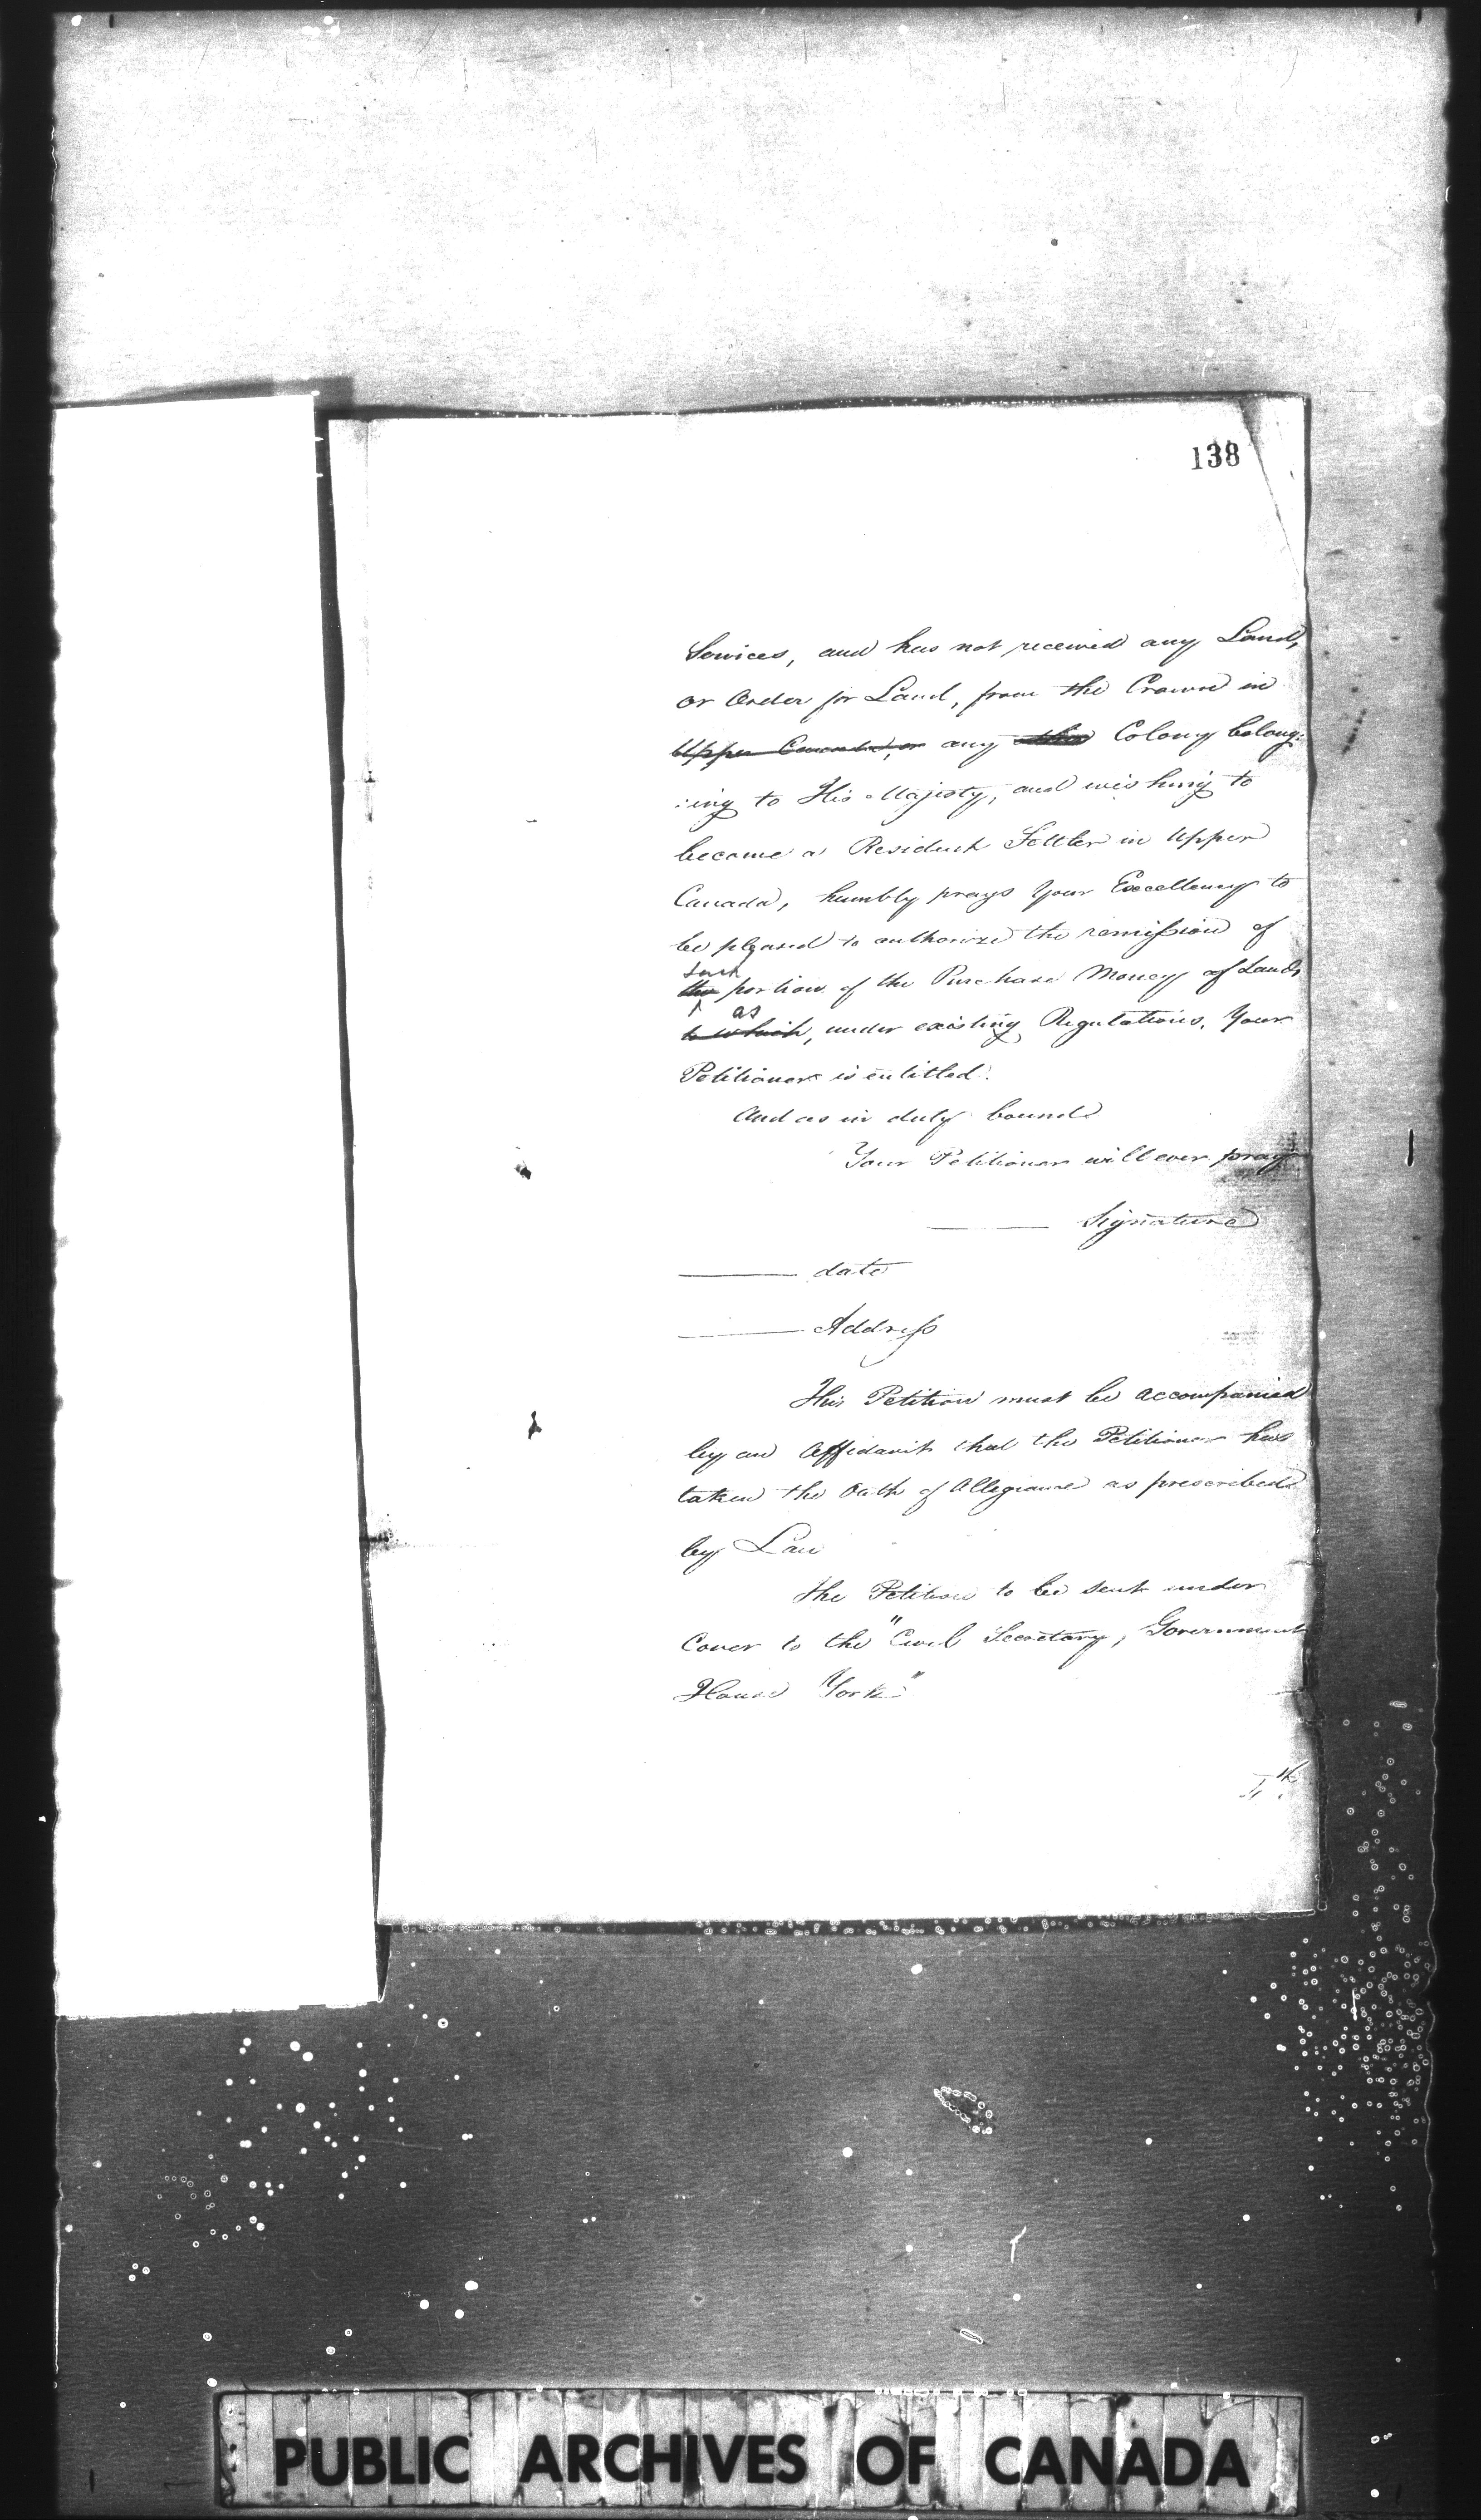 138
Services, and has not received any Land,
or Order for Land, from the Crown in
Upper Canada, or any other Colony belong-
:ing to His Majesty, and wishing to
become a Resident Settler in Upper
Canada, humbly prays Your Excellency to
be pleased to authorize the remission of
such
the portion of the Purchase Money of Lands
as
to which, under existing Regulations, Your
Petitioner is entitled.
And as in duty bound
Your Petitioner will ever pray
Signature
date
Address
This Petition must be accompanied
by an Affidavit that the Petitioner has
taken the Oath of Allegiance as prescribed
by Law
The Petition to be sent under
Cover to the "Civil Secretary, Government
House York"
PUBLIC ARCHIVES OF CANADA